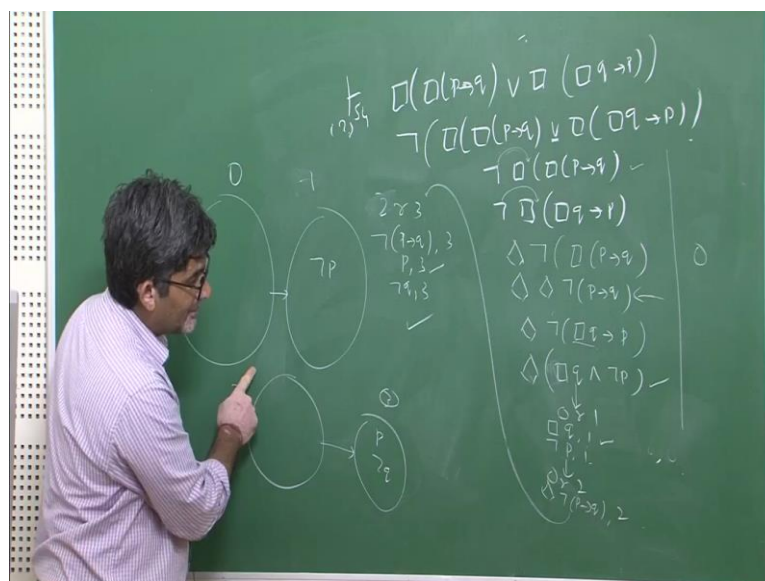 ⊢ □(□(p→q) ∨ □(□q→p))
¬(□(□(p→q) ∨ □(□q→p))
¬□(□(p→q) ✓
¬□(□q→p)
◇¬(□(p→q)
◇◇¬(p→q) ←
◇¬(□q→p)
◇(□q∧¬p) ✓
0r1
□q,1 ✓
¬p,1
0r2
◇¬(p→q),2
0
2r3
¬(p→q),3
p,3 ✓
¬q,3
✓
0
1
¬p
2
p
¬q